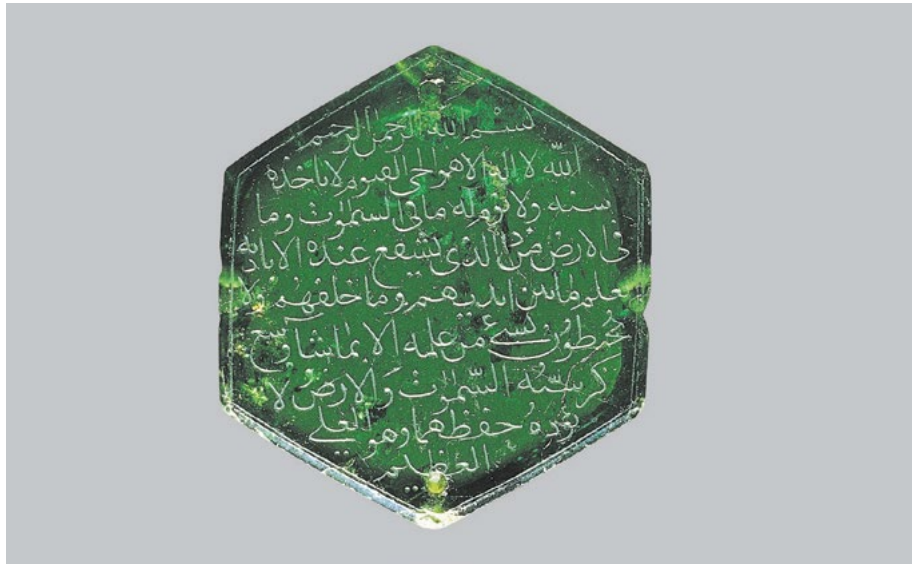 بسم الله الرحمن الرحيم
الله لا اله الا هو الحى القيوم لا تاخذه
سنه ولا نوم له ما فى السمٰوٰت وما
فى الارض من ذا الذى يشفع عنده الا باذنه
يعلم ما بين ايديهم وما خلفهم ولا
يحيطون بشئ من علمه الا بما شا وسع
كرسيّه السّمٰوٰت والارض ولا
يؤده حفظهما وهو العلي
العظيم